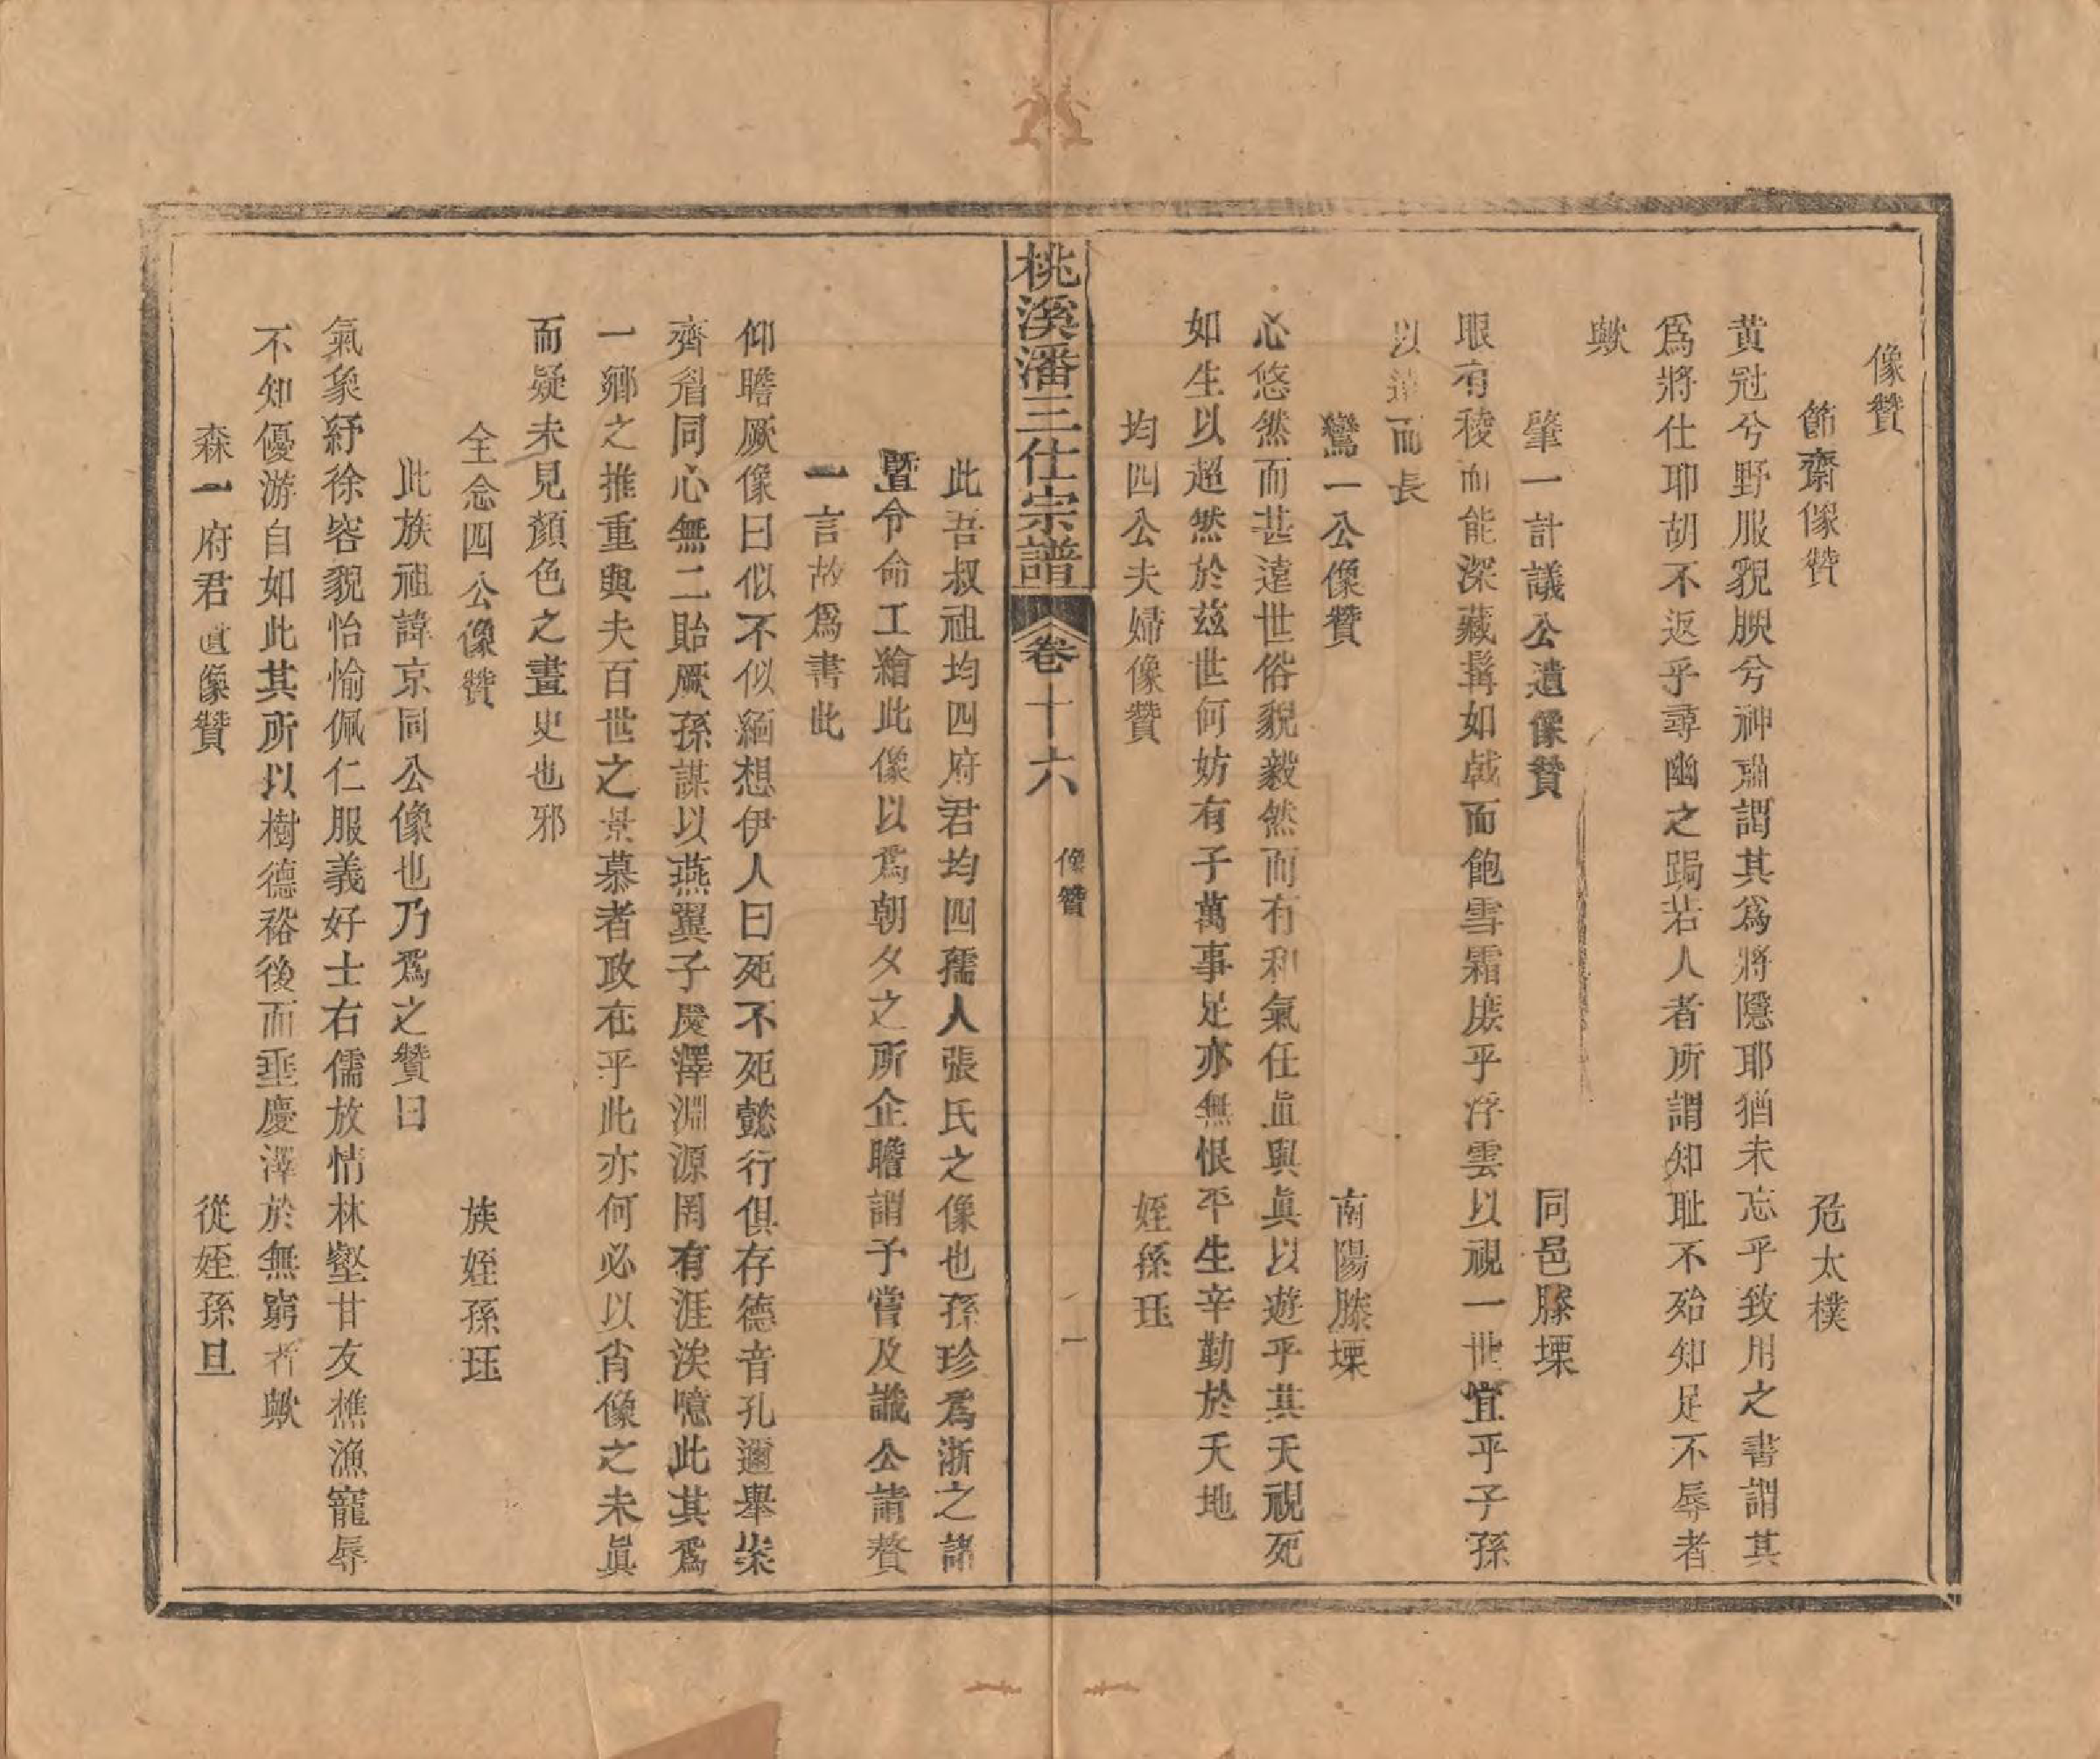 像贊
節齋像贊 危太樸
黄冠兮野服貌腴兮神肅謂其爲將隱耶猶未忘乎致用之書謂其
爲將仕耶胡不返乎尋幽之躅若人者所謂知耻不殆知足不辱者
歟
肇一計議公遺像贊 同邑滕塛
眼有稜而能深藏髯如戟而飽雪霜庶乎浮雲以視一世宜乎子孫
以遠而長
鸞一公像贊 南陽滕塛
心悠然而甚遠世俗貌毅然而有和氣任眞與眞以遊乎其天視死
如生以超然於兹世何妨有子萬事足亦無恨平生辛勤於天地
均四公夫婦像贊 姪孫珏
桃溪潘三仕宗譜 卷十六 像贊 一
此吾叔祖均四府君均四孺人張氏之像也孫珍爲浙之諸
暨令命工繪此像以爲朝夕之所企瞻謂予嘗及識公請贅
一言故爲書此
仰瞻厥像曰似不似緬想伊人曰死不死懿行俱存德音孔邇舉桉
齊眉同心無二貽厥孫謀以燕翼子慶澤淵源罔有涯涘噫此其爲
一鄉之推重與夫百世之景慕者政在乎此亦何必以肖像之未眞
而疑未見顏色之畫史也邪
全念四公像贊 族姪孫珏
此族祖諱京同公像也乃爲之贊曰
氣象紓徐容貌怡愉佩仁服義好士右儒放情林壑甘友樵漁寵辱
不知優游自如此其所以樹德裕後而垂慶澤於無窮者歟
森一府君眞像贊 從姪孫旦